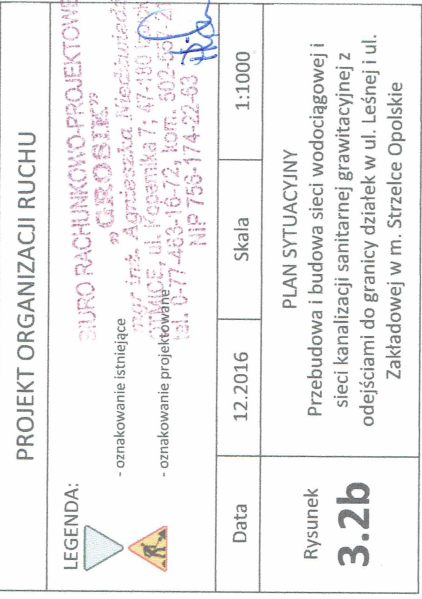 PROJEKT ORGANIZACJI RUCHU
LEGENDA:
- oznakowanie istniejące
- oznakowanie projektowane
BIURO RACHUNKOWO-PROJEKTOWE
"GROSIK"
mgr inż. Agnieszka
ul. Kopernika 7; 47-180
tel. 0-77-463-16-72, kom. 502-
NIP 756-174-22-63
Data
12.2016
Skala
1:1000
Rysunek
3.2b
PLAN SYTUACYJNY
Przebudowa i budowa sieci wodociągowej i
sieci kanalizacji sanitarnej grawitacyjnej z
odejściami do granicy działek w ul. Leśnej i ul.
Zakładowej w m. Strzelce Opolskie